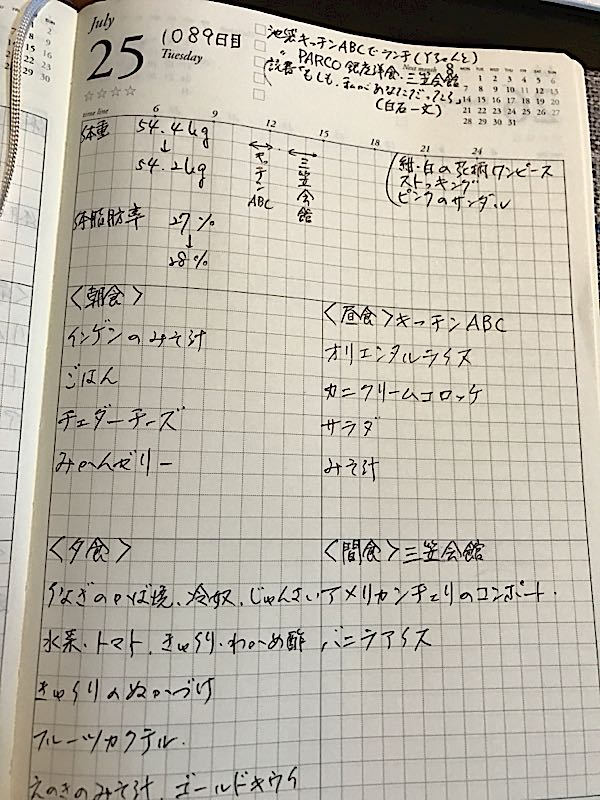 July
25
Tuesday
1089日目
池袋キッチンABCでランチ(Yちゃんと)
〃 PARCO 銀座洋食・三笠会館
読書「もしも、私があなただったら」
(白石一文)
Next month 8
MON TUE WED THU FRI SAT SUN
1 2 3 4 5 6
7 8 9 10 11 12 13
14 15 16 17 18 19 20
21 22 23 24 25 26 27
28 29 30 31
time line 6 9 12 15 18 21 24
体重 54.4kg
↓
54.2kg
キッチンABC
三笠会館
紺・白の花柄ワンピース
ストッキング
ピンクのサンダル
体脂肪率 27%
↓
28%
<朝食>
インゲンのみそ汁
ごはん
チェダーチーズ
みかんゼリー
<昼食>キッチンABC
オリエンタルライス
カニクリームコロッケ
サラダ
みそ汁
<夕食>
うなぎのかば焼、冷奴、じゅんさい
水菜・トマト、きゅうり・わかめ酢
きゅうりのぬかづけ
フルーツカクテル.
えのきのみそ汁、ゴールドキウイ
<間食>三笠会館
アメリカンチェリのコンポート.
バニラアイス